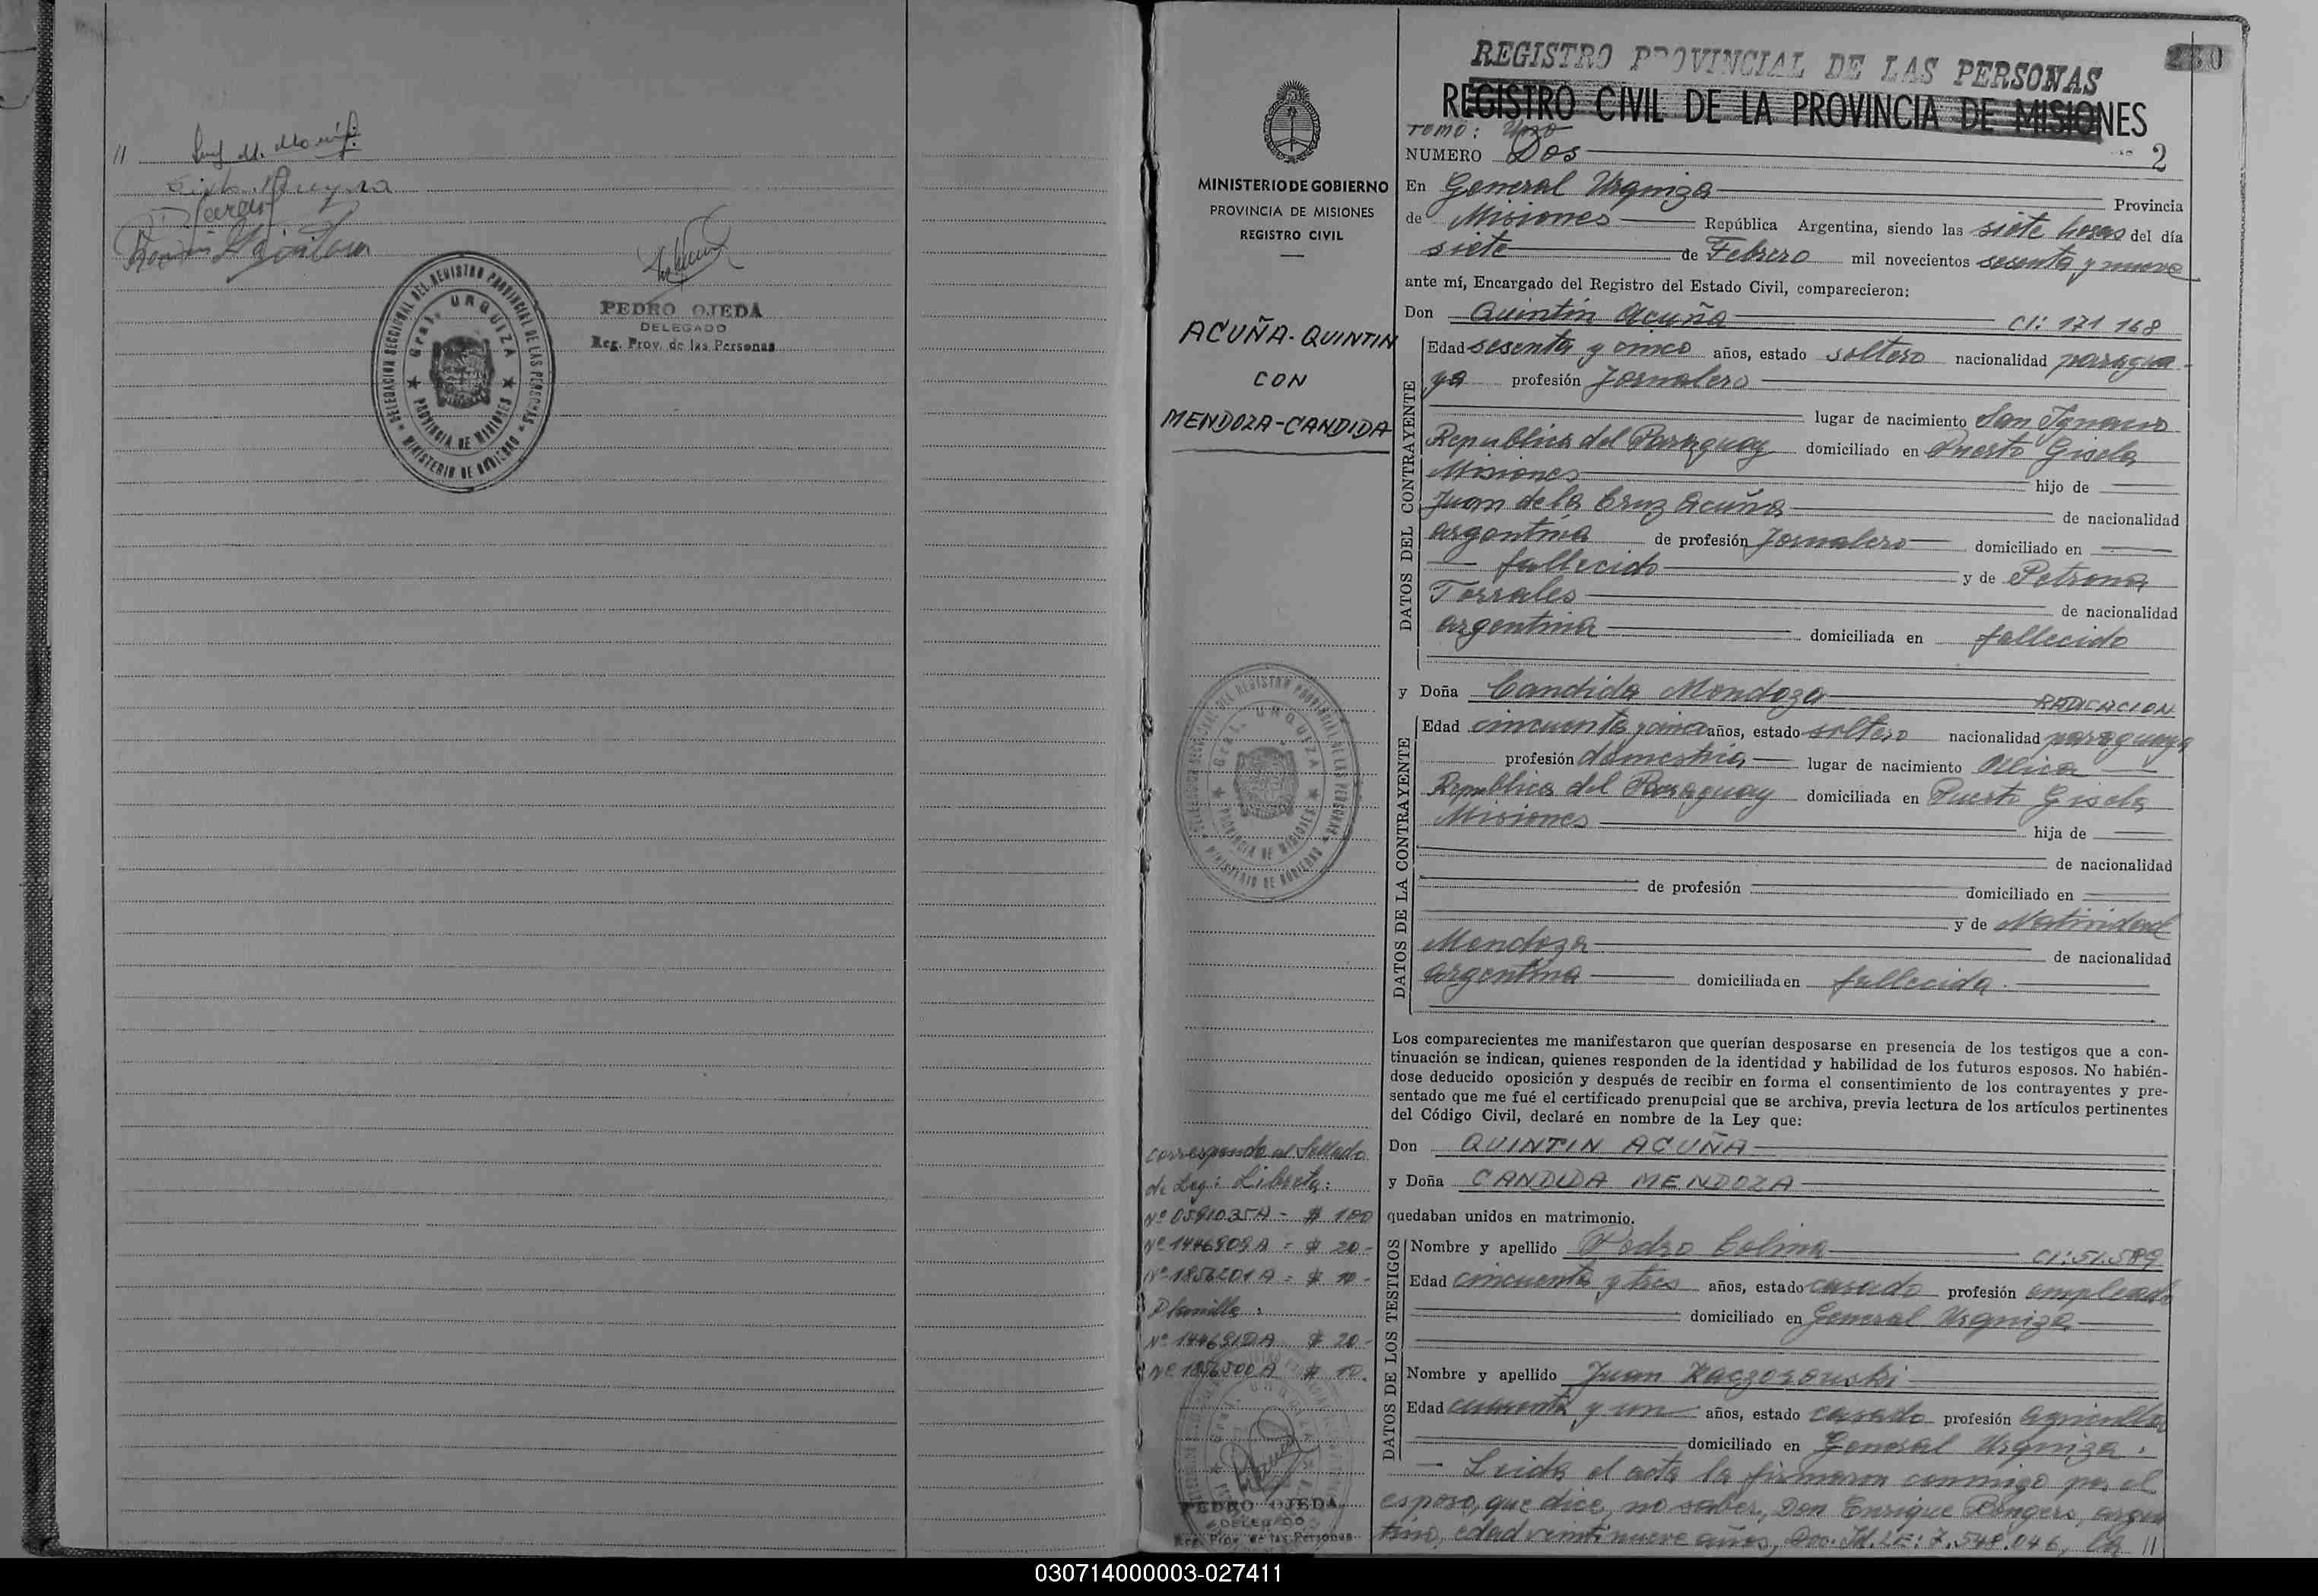 //
PEDRO OJEDA
DELEGADO
Reg. Prov. de las Personas
DELEGACION SECCIONAL DEL REGISTRO PROVINCIAL DE LAS PERSONAS
MINISTERIO DE GOBIERNO
Gral. URQUIZA
PROVINCIA DE MISIONES
MINISTERIO DE GOBIERNO
PROVINCIA DE MISIONES
REGISTRO CIVIL
ACUÑA-QUINTIN
CON
MENDOZA-CANDIDA
DELEGACION SECCIONAL DEL REGISTRO PROVINCIAL DE LAS PERSONAS
MINISTERIO DE GOBIERNO
Gral. URQUIZA
PROVINCIA DE MISIONES
Corresponde al Sellado
de Ley: Libreta:
Nº 0591035A - $ 100
Nº 1446909A = $ 20-
Nº 1856201A = $ 10-
Planilla:
Nº 1446910A $ 20-
Nº 1856500A $ 10.
PEDRO OJEDA
DELEGADO
Reg. Prov. de las Personas
REGISTRO PROVINCIAL DE LAS PERSONAS
REGISTRO CIVIL DE LA PROVINCIA DE MISIONES
TOMO: Uno
NUMERO Dos 2
En General Urquiza Provincia
de Misiones República Argentina, siendo las siete horas del día
siete de Febrero mil novecientos sesenta y nueve
ante mí, Encargado del Registro del Estado Civil, comparecieron:
Don Quintín Acuña CI: 171 168
DATOS DEL CONTRAYENTE
Edad sesenta y cinco años, estado soltero nacionalidad paragua-
ya profesión Jornalero
lugar de nacimiento San Ignacio
Republica del Paraguay domiciliado en Puerto Gisela
Misiones hijo de
Juan de la Cruz Acuña de nacionalidad
argentina de profesión Jornalero domiciliado en
fallecido y de Petrona
Torrales de nacionalidad
argentina domiciliada en fallecido
y Doña Candida Mendoza RADICACION
DATOS DE LA CONTRAYENTE
Edad cincuenta y cinco años, estado soltero nacionalidad paraguaya
profesión domestica lugar de nacimiento
Republica del Paraguay domiciliada en Puerto Gisela
Misiones hija de
de nacionalidad
de profesión domiciliado en
y de Natividad
Mendoza de nacionalidad
argentina domiciliada en fallecida.
Los comparecientes me manifestaron que querían desposarse en presencia de los testigos que a con-
tinuación se indican, quienes responden de la identidad y habilidad de los futuros esposos. No habién-
dose deducido oposición y después de recibir en forma el consentimiento de los contrayentes y pre-
sentado que me fué el certificado prenupcial que se archiva, previa lectura de los artículos pertinentes
del Código Civil, declaré en nombre de la Ley que:
Don QUINTIN ACUÑA
y Doña CANDIDA MENDOZA
quedaban unidos en matrimonio.
DATOS DE LOS TESTIGOS
Nombre y apellido Pedro Colina CI: 51.589
Edad cincuenta y tres años, estado casado profesión empleado
domiciliado en General Urquiza
Nombre y apellido Juan Kaczorowski
Edad cuarenta y un años, estado casado profesión agricultor
domiciliado en General Urquiza.
- Leida el acta la firmaron conmigo por el
esposo, que dice, no saber, Don Enrique Bongers, argen
tino, edad veintinueve años, Doc. Id. LE: 7.548.046, //
030714000003-027411